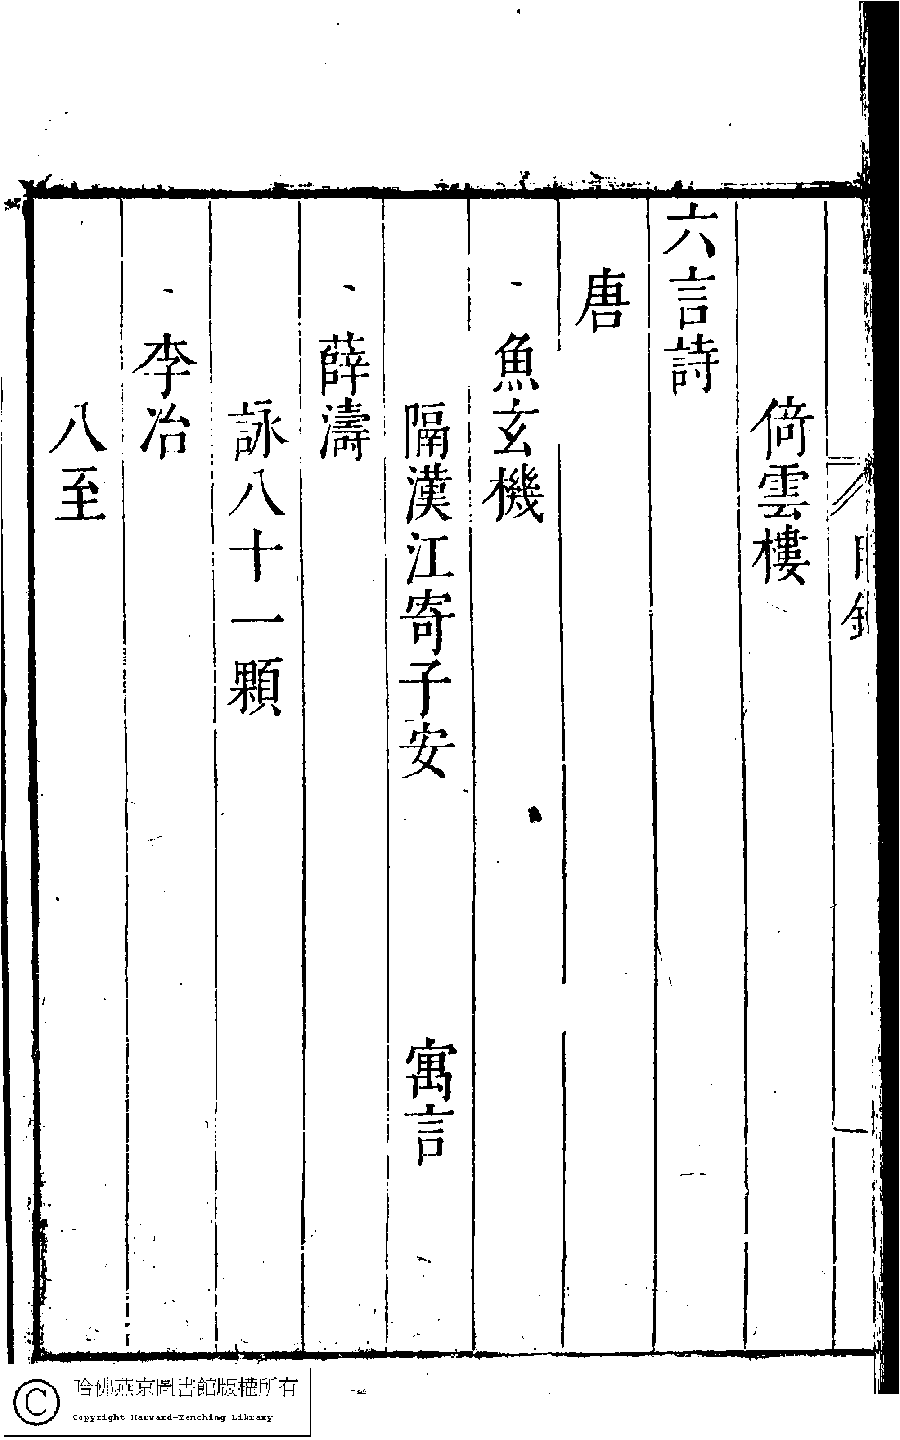 倚雲樓
六言詩
唐
魚玄機
隔漢江寄子安 寓言
薛濤
詠八十一顆
李冶
八至
哈佛燕京圖書館版權所有
Copyright Harvard-Yenching Library